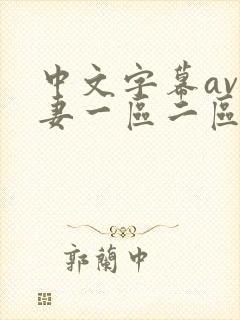 中文字幕av
妻一區二區
郭蘭中